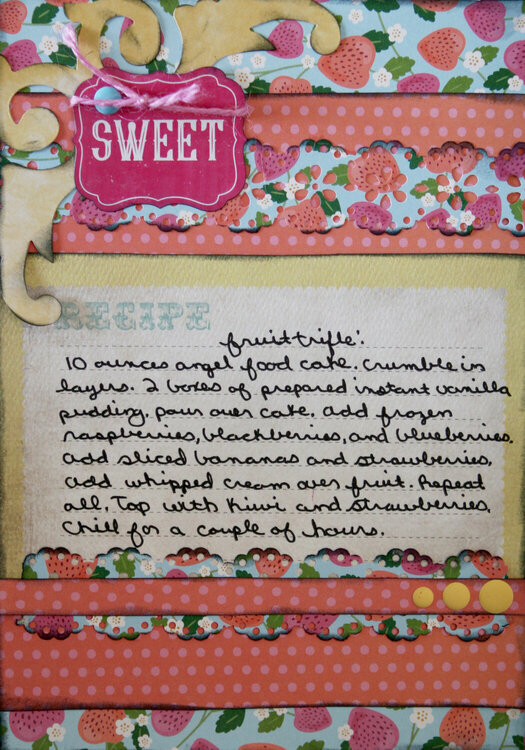 SWEET
RECIPE
fruit trifle:
10 ounces angel food cake. crumble in
layers. 2 boxes of prepared instant vanilla
pudding. pour over cake. add frozen
raspberries, blackberries, and blueberries.
add sliced bananas and strawberries.
add whipped cream over fruit. Repeat
all. Top with kiwi and strawberries.
Chill for a couple of hours.